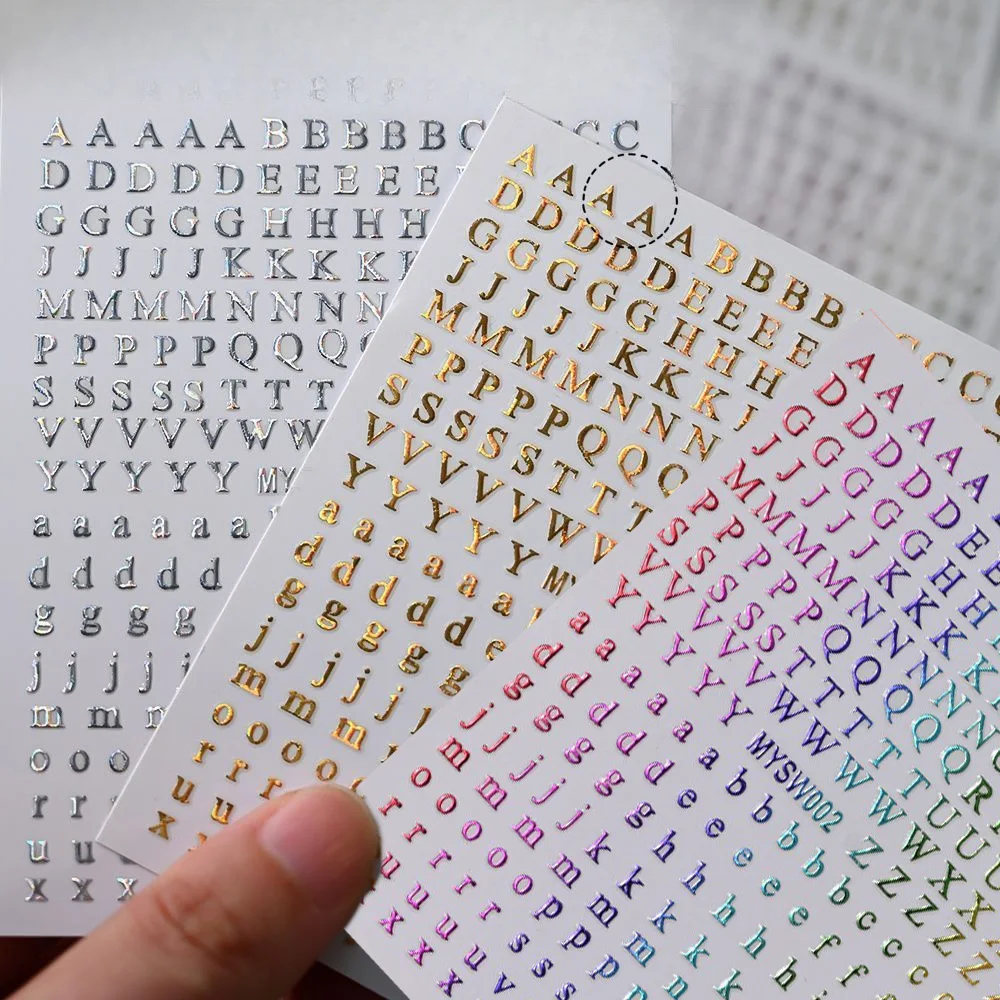 A A A A A B B B B B C C C
D D D D D E E E E
G G G G G H H H H
J J J J J K K K K
M M M M N N N N
P P P P P Q Q Q
S S S S S T T T
V V V V V W W
Y Y Y Y Y MY
a a a a a a
d d d d d
g g g g
j j j j
m m
o o o
r r
u u
x x x
A A A A A B B B B C C C
D D D D D E E E E
G G G G G H H H
J J J J J K K K
M M M M M N N N
P P P P P Q Q Q
S S S S S T T T
V V V V V W
Y Y Y Y Y MY
a a a a a a
d d d d d e
g g g g g
j j j j j
m m m
o o o o
r r
u u
x
A A A A A
D D D D D E E
G G G G G H H
J J J J J K K K
M M M M M N N N N
P P P P P Q Q Q Q R
S S S S S T T T T U U U
V V V V V W W W W W X X X
Y Y Y Y Y MYSW002 Z Z Z Z Z
a a a a a a b b b b b c c c
d d d d d e e e e e f f
g g g g g h h h h h
j j j j j k k k k k
m m m m m
o o o o o p p p
r r r r s s s
u u u u v
x x x